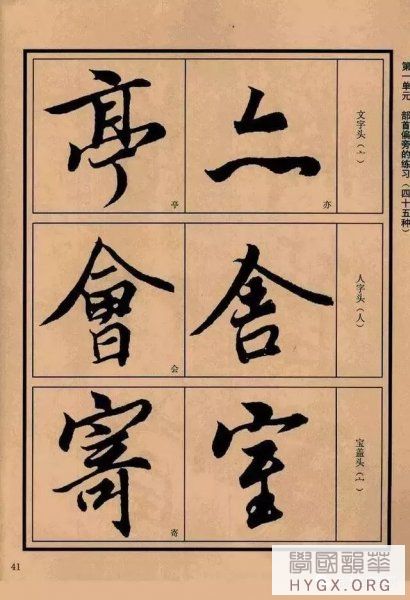 第一单元　部首偏旁的练习（四十五种）
文字头（亠）
亦
亦
亭
亭
人字头（人）
舍
會
会
宝盖头（宀）
室
寄
寄
41
學國韻華
HYGX.ORG